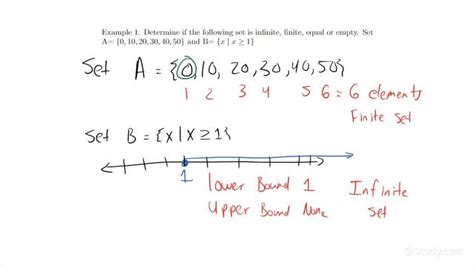 Example 1. Determine if the following set is infinite, finite, equal or empty. Set
A= {0, 10, 20, 30, 40, 50} and B= {x | x ≥ 1}
Set A = {0, 10, 20, 30, 40, 50}
1 2 3 4 5 6 = 6 elements
Finite Set
Set B = {x | x ≥ 1}
1
lower Bound 1
Upper Bound None
Infinite
set
Study.com